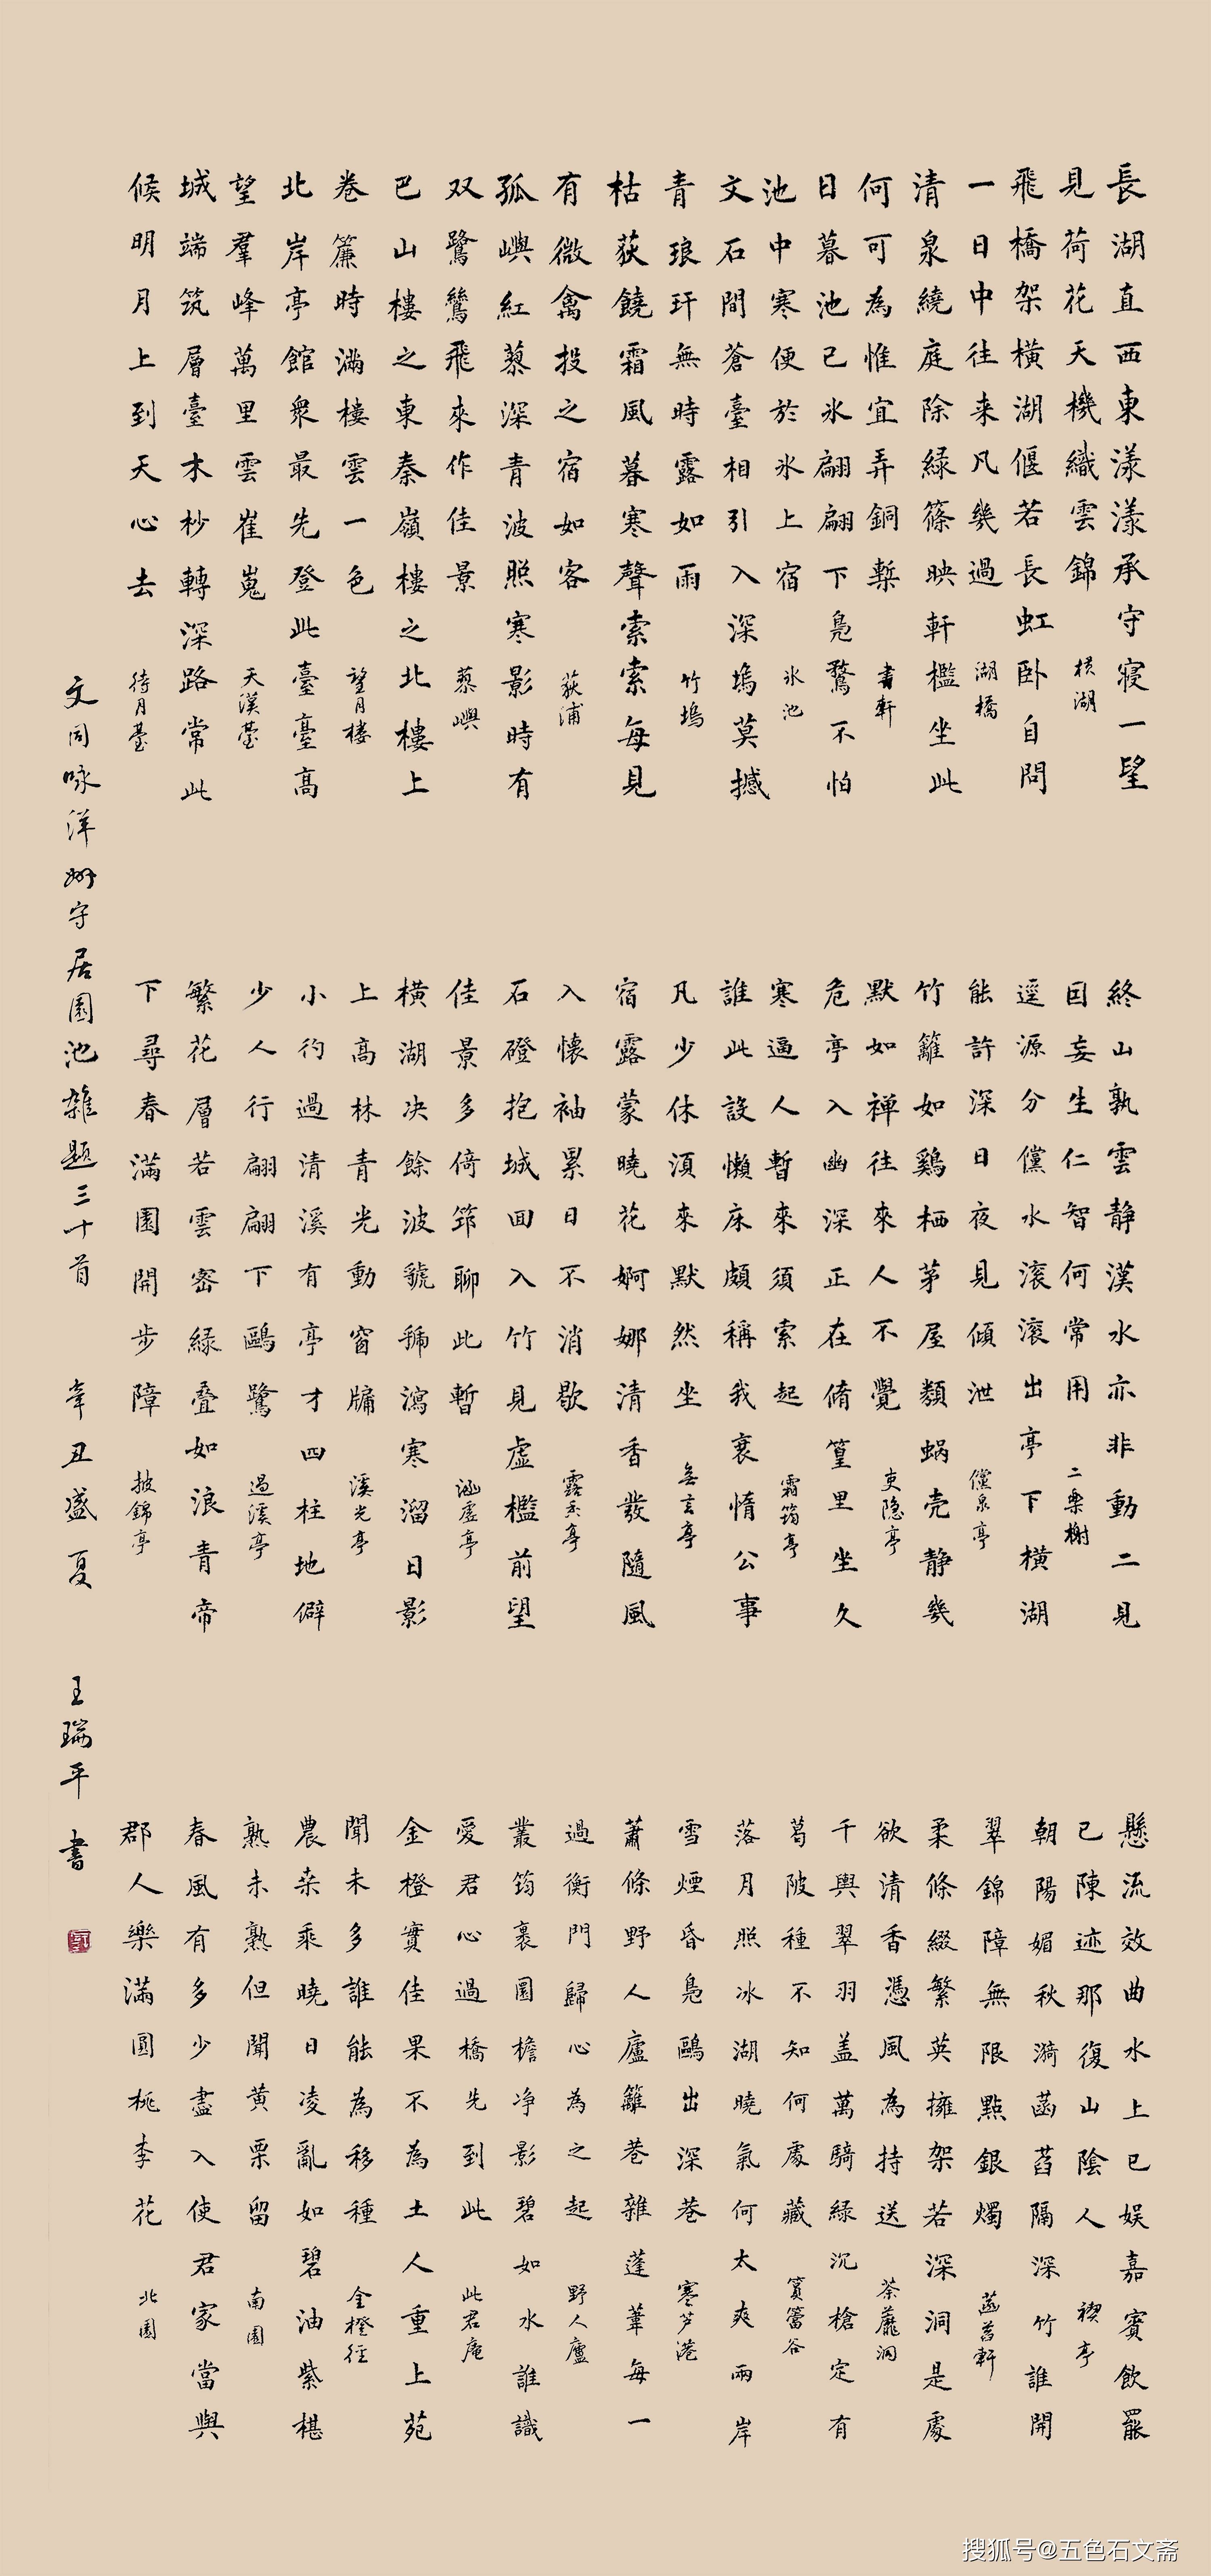 長湖直西東漾漾承守寝一望
見荷花天機織雲錦
横湖
飛橋架横湖偃若長虹卧自問
一日中往来凡幾過
湖橋
清泉繞庭除緑篠映軒檻坐此
何可為惟宜弄銅槧
書軒
日暮池已氷翩翩下鳧鶩不怕
池中寒便於氷上宿
氷池
文石間蒼臺相引入深塢莫撼
青琅玕無時露如雨
竹塢
枯荻饒霜風暮寒聲索索每見
有微禽投之宿如客
荻浦
孤嶼紅蓼深青波照寒影時有
双鷺鷥飛來作佳景
蓼嶼
巴山樓之東秦嶺樓之北樓上
卷簾時滿樓雲一色
望月樓
北岸亭館衆最先登此臺臺高
望羣峰萬里雲崔嵬
天漢臺
城端筑層臺木杪轉深路常此
候明月上到天心去
待月臺
終山孰雲静漢水亦非動二見
因妄生仁智何常用
二樂榭
遥源分儻水滚滚出亭下横湖
能許深日夜見傾泄
儻泉亭
竹籬如鷄栖茅屋類蜗壳静幾
默如禅往來人不覺
吏隐亭
危亭入幽深正在脩篁里坐久
寒逼人暫來須索起
霜筠亭
誰此設懶床頗稱我衰惰公事
凡少休湏來默然坐
無言亭
宿露蒙曉花婀娜清香發隨風
入懷袖累日不消歇
露香亭
石磴抱城回入竹見虚檻前望
佳景多倚筇聊此暫
涵虚亭
横湖决餘波虢虢瀉寒溜日影
上高林青光動窗牖
溪光亭
小彴過清溪有亭才四柱地僻
少人行翩翩下鷗鷺
過溪亭
繁花層若雲密緑叠如浪青帝
下尋春滿園開步障
披錦亭
懸流效曲水上巳娱嘉賓飲罷
已陳迹那復山陰人
禊亭
朝陽媚秋漪菡萏隔深竹誰開
翠錦障無限點銀燭
菡萏軒
柔條綴繁英擁架若深洞是處
欲清香憑風為持送
荼蘼洞
千輿翠羽盖萬騎緑沉槍定有
葛陂種不知何處藏
篔簹谷
落月照冰湖曉氣何太爽兩岸
雪煙昏鳧鷗出深巷
寒芦港
蕭條野人廬籬巷雜蓬葦每一
過衡門歸心為之起
野人廬
叢筠裹園檐净影碧如水誰識
愛君心過橋先到此
此君庵
金橙實佳果不為土人重上苑
聞未多誰能為移種
金橙徑
農桒乘曉日凌亂如碧油紫椹
熟未熟但聞黄栗留
南園
春風有多少盡入使君家當與
郡人樂滿園桃李花
北園
文同咏洋州守居園池雜題三十首 辛丑盛夏 王瑞平書
搜狐号@五色石文斋